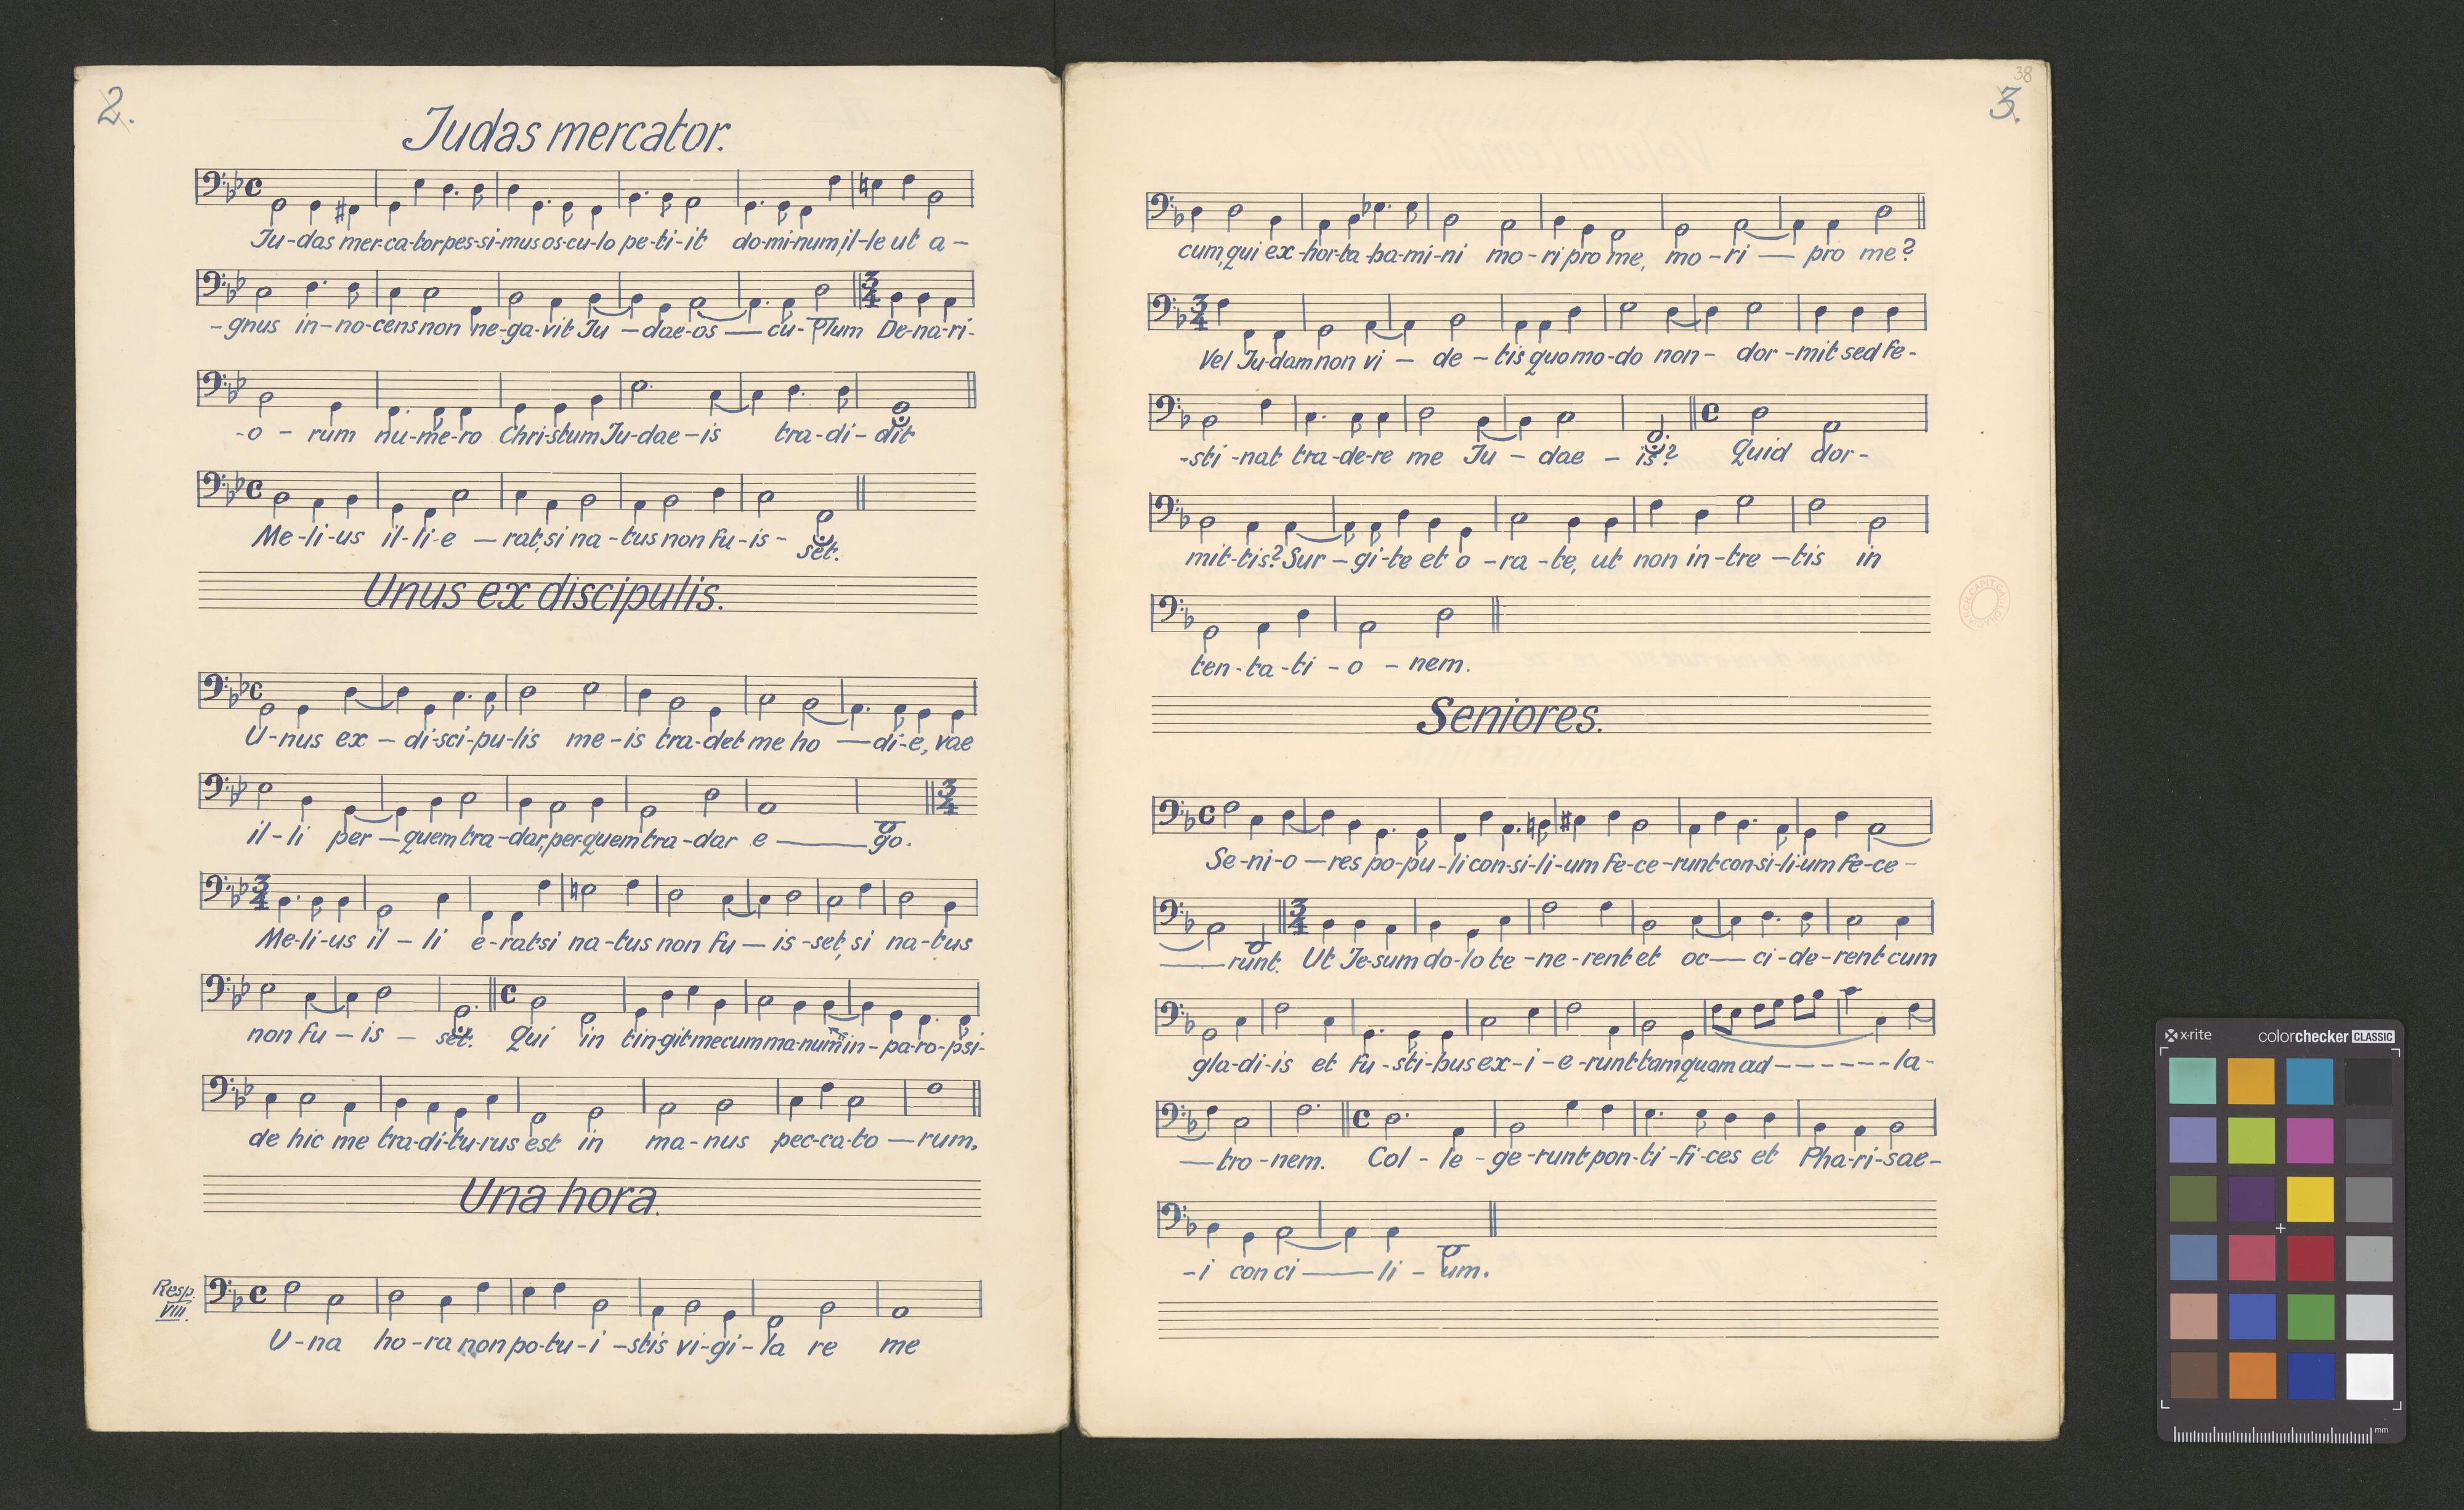 2.
Judas mercator.
Ju-das mer-ca-tor pes-si-mus os-cu-lo pe-ti-it do-mi-num, il-le ut a-
-gnus in-no-cens non ne-ga-vit Ju-dae-os — cu-plum De-na-ri-
-o-rum nu-me-ro Chri-stum Ju-dae-is tra-di-dit
Me-li-us il-li-e-rat, si na-tus non fu-is-set.
Unus ex discipulis.
U-nus ex-di-sci-pu-lis me-is tra-det me ho-di-e, vae
il-li per-quem tra-dar, per-quem tra-dar e-go.
Me-li-us il-li e-rat si na-tus non fu-is-set, si na-tus
non fu-is-set. Qui in tin-git me cum ma-num in-pa-ro-psi-
de hic me tra-di-tu-rus est in ma-nus pec-ca-to-rum.
Una hora.
Resp.
VIII.
U-na ho-ra non po-tu-i-stis vi-gi-la re me
38
3.
cum, qui ex-hor-ta-ba-mi-ni mo-ri pro me, mo-ri — pro me?
Vel Ju-dam non vi-de-tis quo mo-do non-dor-mit sed fe-
-sti-nat tra-de-re me Ju-dae-is? Quid dor-
mit-tis? Sur-gi-te et o-ra-te, ut non in-tre-tis in
ten-ta-ti-o-nem.
Seniores.
Se-ni-o-res po-pu-li con-si-li-um fe-ce-runt con-si-li-um fe-ce-
—runt. Ut Je-sum do-lo te-ne-rent et oc—ci-de-rent cum
gla-di-is et fu-sti-bus ex-i-e-runt tam quam ad------la-
—tro-nem. Col-le-ge-runt pon-ti-fi-ces et Pha-ri-sae-
-i con ci—li-um.
x-rite colorchecker CLASSIC
mm